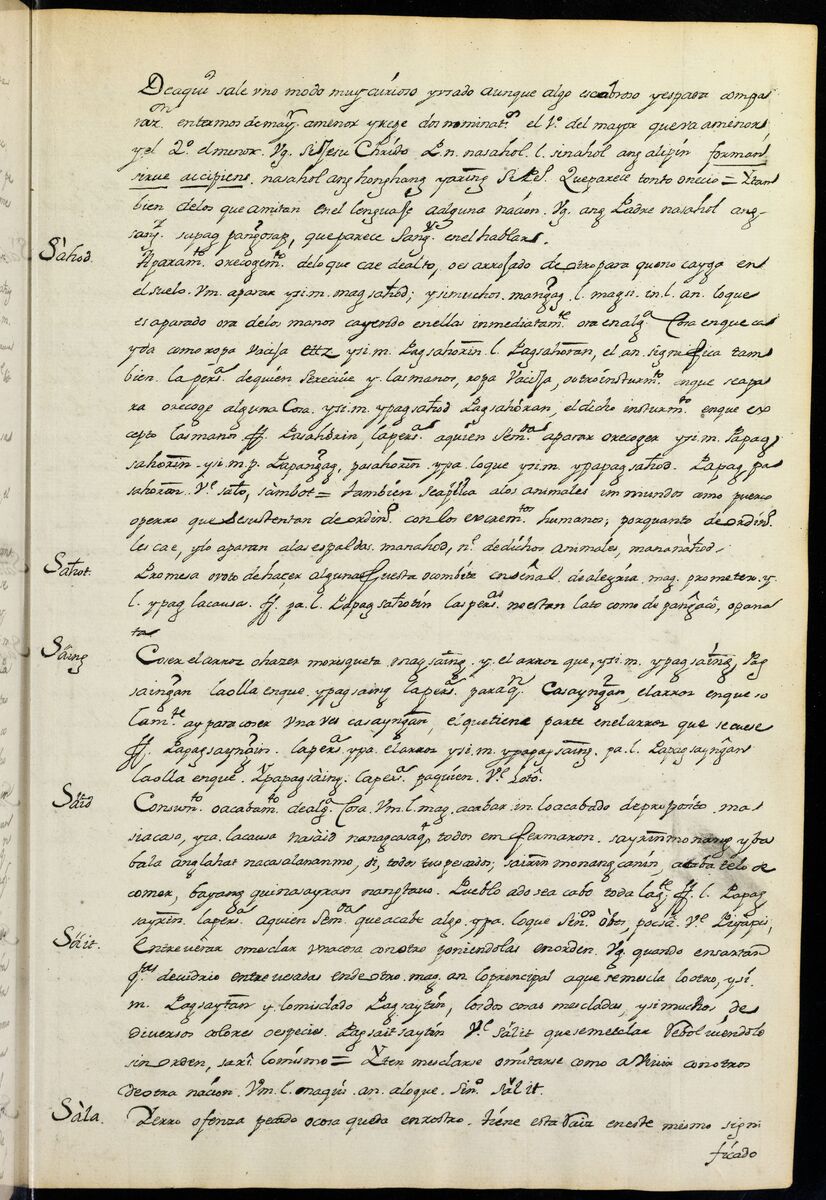 De aqui sale vno modo muy curioso y vsado aunque algo escabroso y es para compa
rar. entamos de may.ʳ amenor y rige dos nominat.ˢ el 1.º del mayor que va amenor
y el 2.º el menor. Vg. si Jesu Christo P.n. nasahol. l. sinahol ang alipin formam
servi accipiens. nasahol ang honghang yaring si P.e Que parece tonto o necio = Ytan
bien de los que amitan en el lenguaje a alguna nacion. Vg. ang Padre nasahol ang
sang.ˡ sa pag pangosap, que parece sang.ˡ en el hablar.
Sàhod. Aparam.ᵗᵒ o recogem.ᵗᵒ de lo que cae de alto, o es arrojado de otro para que no cayga en
el suelo. Vm. aparar y si m. mag sahod; y si muchos. mangag. l. magsi. in. l. an. lo que
es aparado ora de los manos cayendo en ellas inmediatam.ᵗᵉ ora en alg.ᵃ Cosa en que ca
yda como ropa vacija ettz y si m. Pagsahorin. l. Pagsahoran, el an. significa tam
bien. la pers.ᵃ de quien se recive y las manos, ropa vacija, ootro insturm.ᵗᵒ en que se apa
ra o recoge alguna Cosa. y si m. ypag sahod Pagsahoran, el dicho insturm.ᵗᵒ en que ex
cepto las manos ff. Pasahorin, la pers.ᵃ aquien se m.ᵈᵃ aparar o recoger y si m. Papag
sahorin. y si m. p. Papangag, pasahorin ypa. lo que y si m. ypapag sahod. Papag pa
sahoran. V.ᵉ salo, sambot = tambien se aplica alos animales inmundos como puerco
o perro que se sustentan de ordin.º con los excrem.ᵗᵒˢ humanos; porquanto de ordin.º
les cae, y lo aparan a las espaldas. manahod, n.º de dichos animales, mananahod.
Sahot. Promesa o voto de hacer alguna fiesta o combite en señal de alegria, mag. prometer. y.
l. ypag la causa. ff. pa. l. Papag sahotin las pers.ᵃˢ no es tan lato como de pangaco, o pana
ta
Saing Coser el arroz o hazer morisqueta. mag saing. y. el arroz que, y si m. ypag saing, Pag
saingan la olla en que. ypag saing la pers.ᵃ para q.ⁿ Casayngan, el arroz en que so
lam.ᵗᵉ ay para coser vna ves casayngan, el que tiene parte en el arroz que se cuese
ff. Papagsayngin. la pers.ᵃ ypa. el arroz y si m. ypapag saing. pa. l. Papag sayngan
la olla enque. Ypapag saing. la pers.ᵃ paquien. V.ᵉ Loto.
Saìd Consum.ᵗᵒ o acabam.ᵗᵒ de alg.ᵃ Cosa. Vm. l. mag. acabar in lo acabado de proposito. ma
si acaso, yca. la causa nasàid nanagcasaq.ᵗ todos emfermaron. sayrin mo nang yba
bala ang lahat na casalanan mo, di, todos tus pecados; sairin mo nang canin, acaba telo de
comer, bayang quinasayran nang tavo. Pueblo adosea cabo toda la g.ᵗᵉ ff. l. Papag
sayrin. la pers.ᵃ a quien se m.ᵈᵃ que acabe algo. ypa. lo que Sin.º obos, pocsa. V.ᵉ Ligapis;
Saìit. Entreverar o mesclar vna cosa con otro poniendolas en orden. Vg. quando ensartan
q.ᵗᵃˢ de vidrio entreveradas en de otro. mag. an lo principal a que se mescla lo otro, y si
m. Pagsaytan y. lo misclado Pagsaytin, los dos cosas mescladas, y si muchos de
diversos colores o especies. Pagsaitsaytin V.ᵉ sàlit que se mesclar rebolviendolo
sin orden, sari. lo mismo = Yten mesclarse o mitarse como a vivir con otros
de otra nacion. Vm. l. maqui. an. aloque. Sin.º sàlit.
Sàla. Yerro ofenza pecado o cosa queda en rostro. tiene esta raiz en este mismo signi
ficado